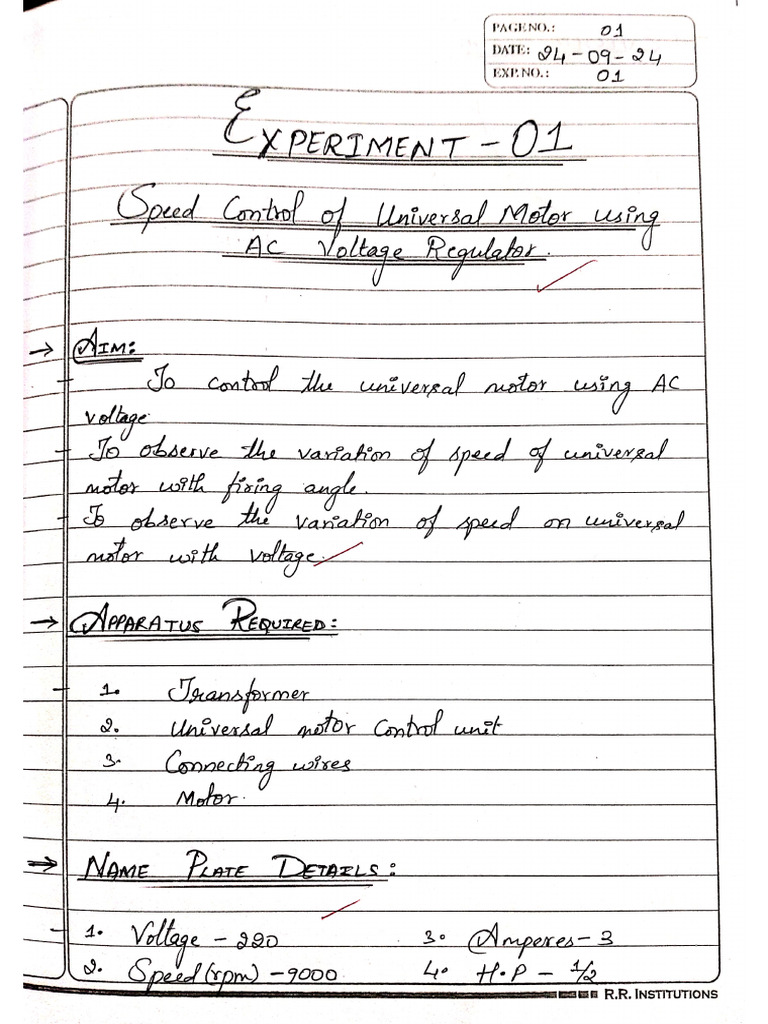 PAGE NO.: 01
DATE: 24-09-24
EXP. NO.: 01
EXPERIMENT - 01
Speed Control of Universal Motor using
AC Voltage Regulator.
→ AIM:
- To control the universal motor using AC
voltage.
- To observe the variation of speed of universal
motor with firing angle.
- To observe the variation of speed on universal
motor with voltage.
→ APPARATUS REQUIRED:
1. Transformer
2. Universal motor control unit
3. Connecting wires
4. Motor.
⇒ NAME PLATE DETAILS:
1. Voltage - 220 3. Amperes - 3
2. Speed (rpm) - 9000 4. H.P - 1/2
R.R. INSTITUTIONS